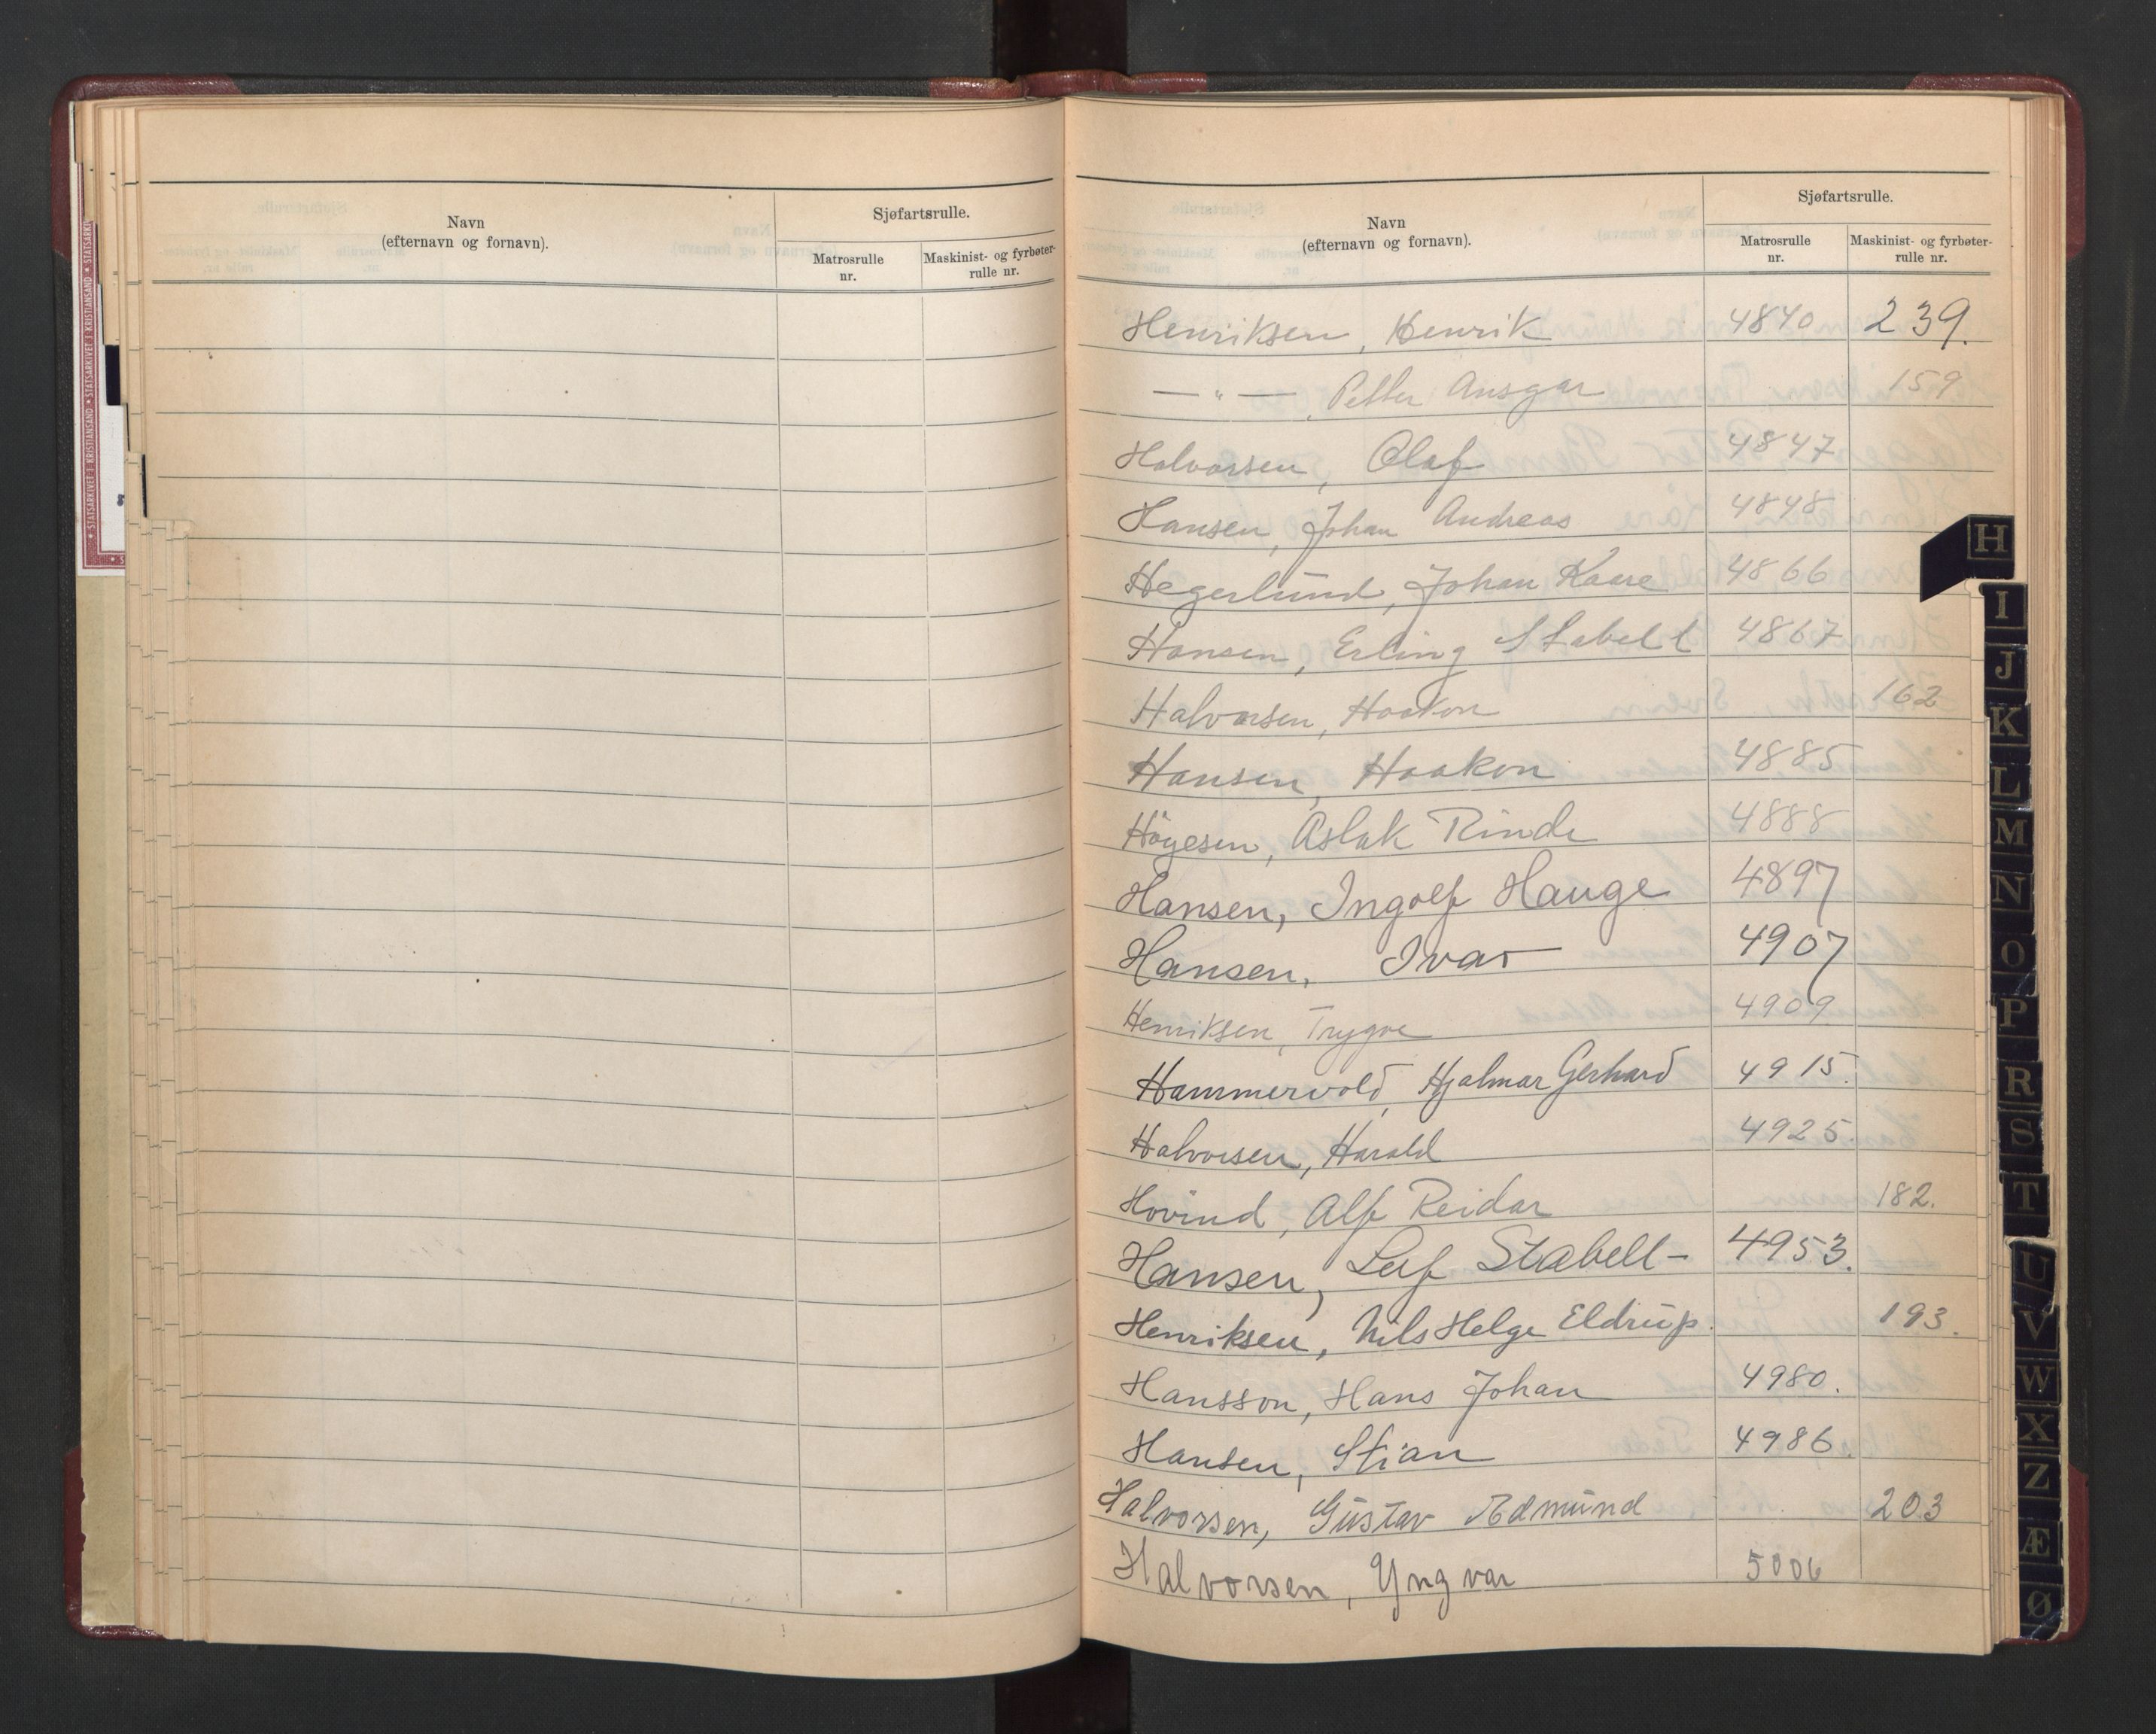 Navn
(efternavn og fornavn).
Sjøfartsrulle.
Matrosrulle
nr.
Maskinist- og fyrbøter-
rulle nr.
Navn
(efternavn og fornavn).
Sjøfartsrulle.
Matrosrulle
nr.
Maskinist- og fyrbøter-
rulle nr.
Henriksen, Henrik 4840 239.
— " — , Petter Ansgar 159
Halvorsen, Olaf 4847
Hansen, Johan Andreas 4848
Hegerlund, Johan Kaare 4866
Hansen, Erling Stabell 4867
Halvorsen, Haakon 162
Hansen, Haakon 4885
Höyesen, Aslak Rinde 4888
Hansen, Ingolf Hauge 4897
Hansen, Ivar 4907
Henriksen, Trygve 4909
Hammervold, Hjalmar Gerhard 4915.
Halvorsen, Harald 4925.
Hovind, Alf Reidar 182.
Hansen, Leif Stabell- 4953.
Henriksen, Nils Helge Eldrup. 193.
Hansson, Hans Johan 4980.
Hansen, Stian 4986.
Halvorsen, Gustav Edmund 203
Halvorsen, Yngvar 5006
H
I
J
K
L
M
N
O
P
R
S
T
U
V
W
X
Z
Æ
Ø
STATSARKIVET I KRISTIANSAND * STATSARKIVET I KRISTIANSAND * STATSARKI